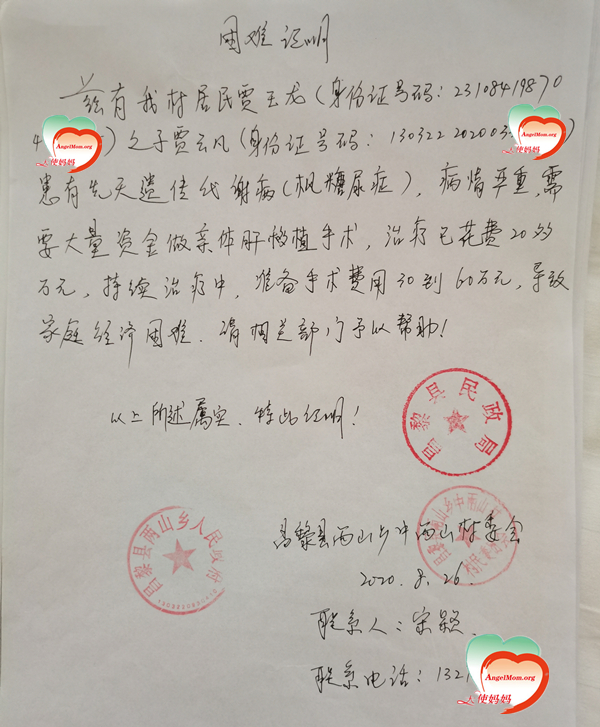 困难证明
兹有我村居民贾玉龙(身份证号码：23108419870
4 AngelMom.org 天使妈妈 )之子贾云凡(身份证号码：130322202003 AngelMom.org 天使妈妈 )
患有先天遗传代谢病(枫糖尿症)，病情严重，需
要大量资金做亲体肝移植手术，治疗已花费20多
万元，持续治疗中，准备手术费用30到60万元，导致
家庭经济困难。请相关部门予以帮助！
以上所述属实，特此证明！
昌黎县民政局
昌黎县两山乡人民政府
昌黎县两山乡中两山村委会
2020.8.26
联系人：宋颖
联系电话：132
AngelMom.org
天使妈妈